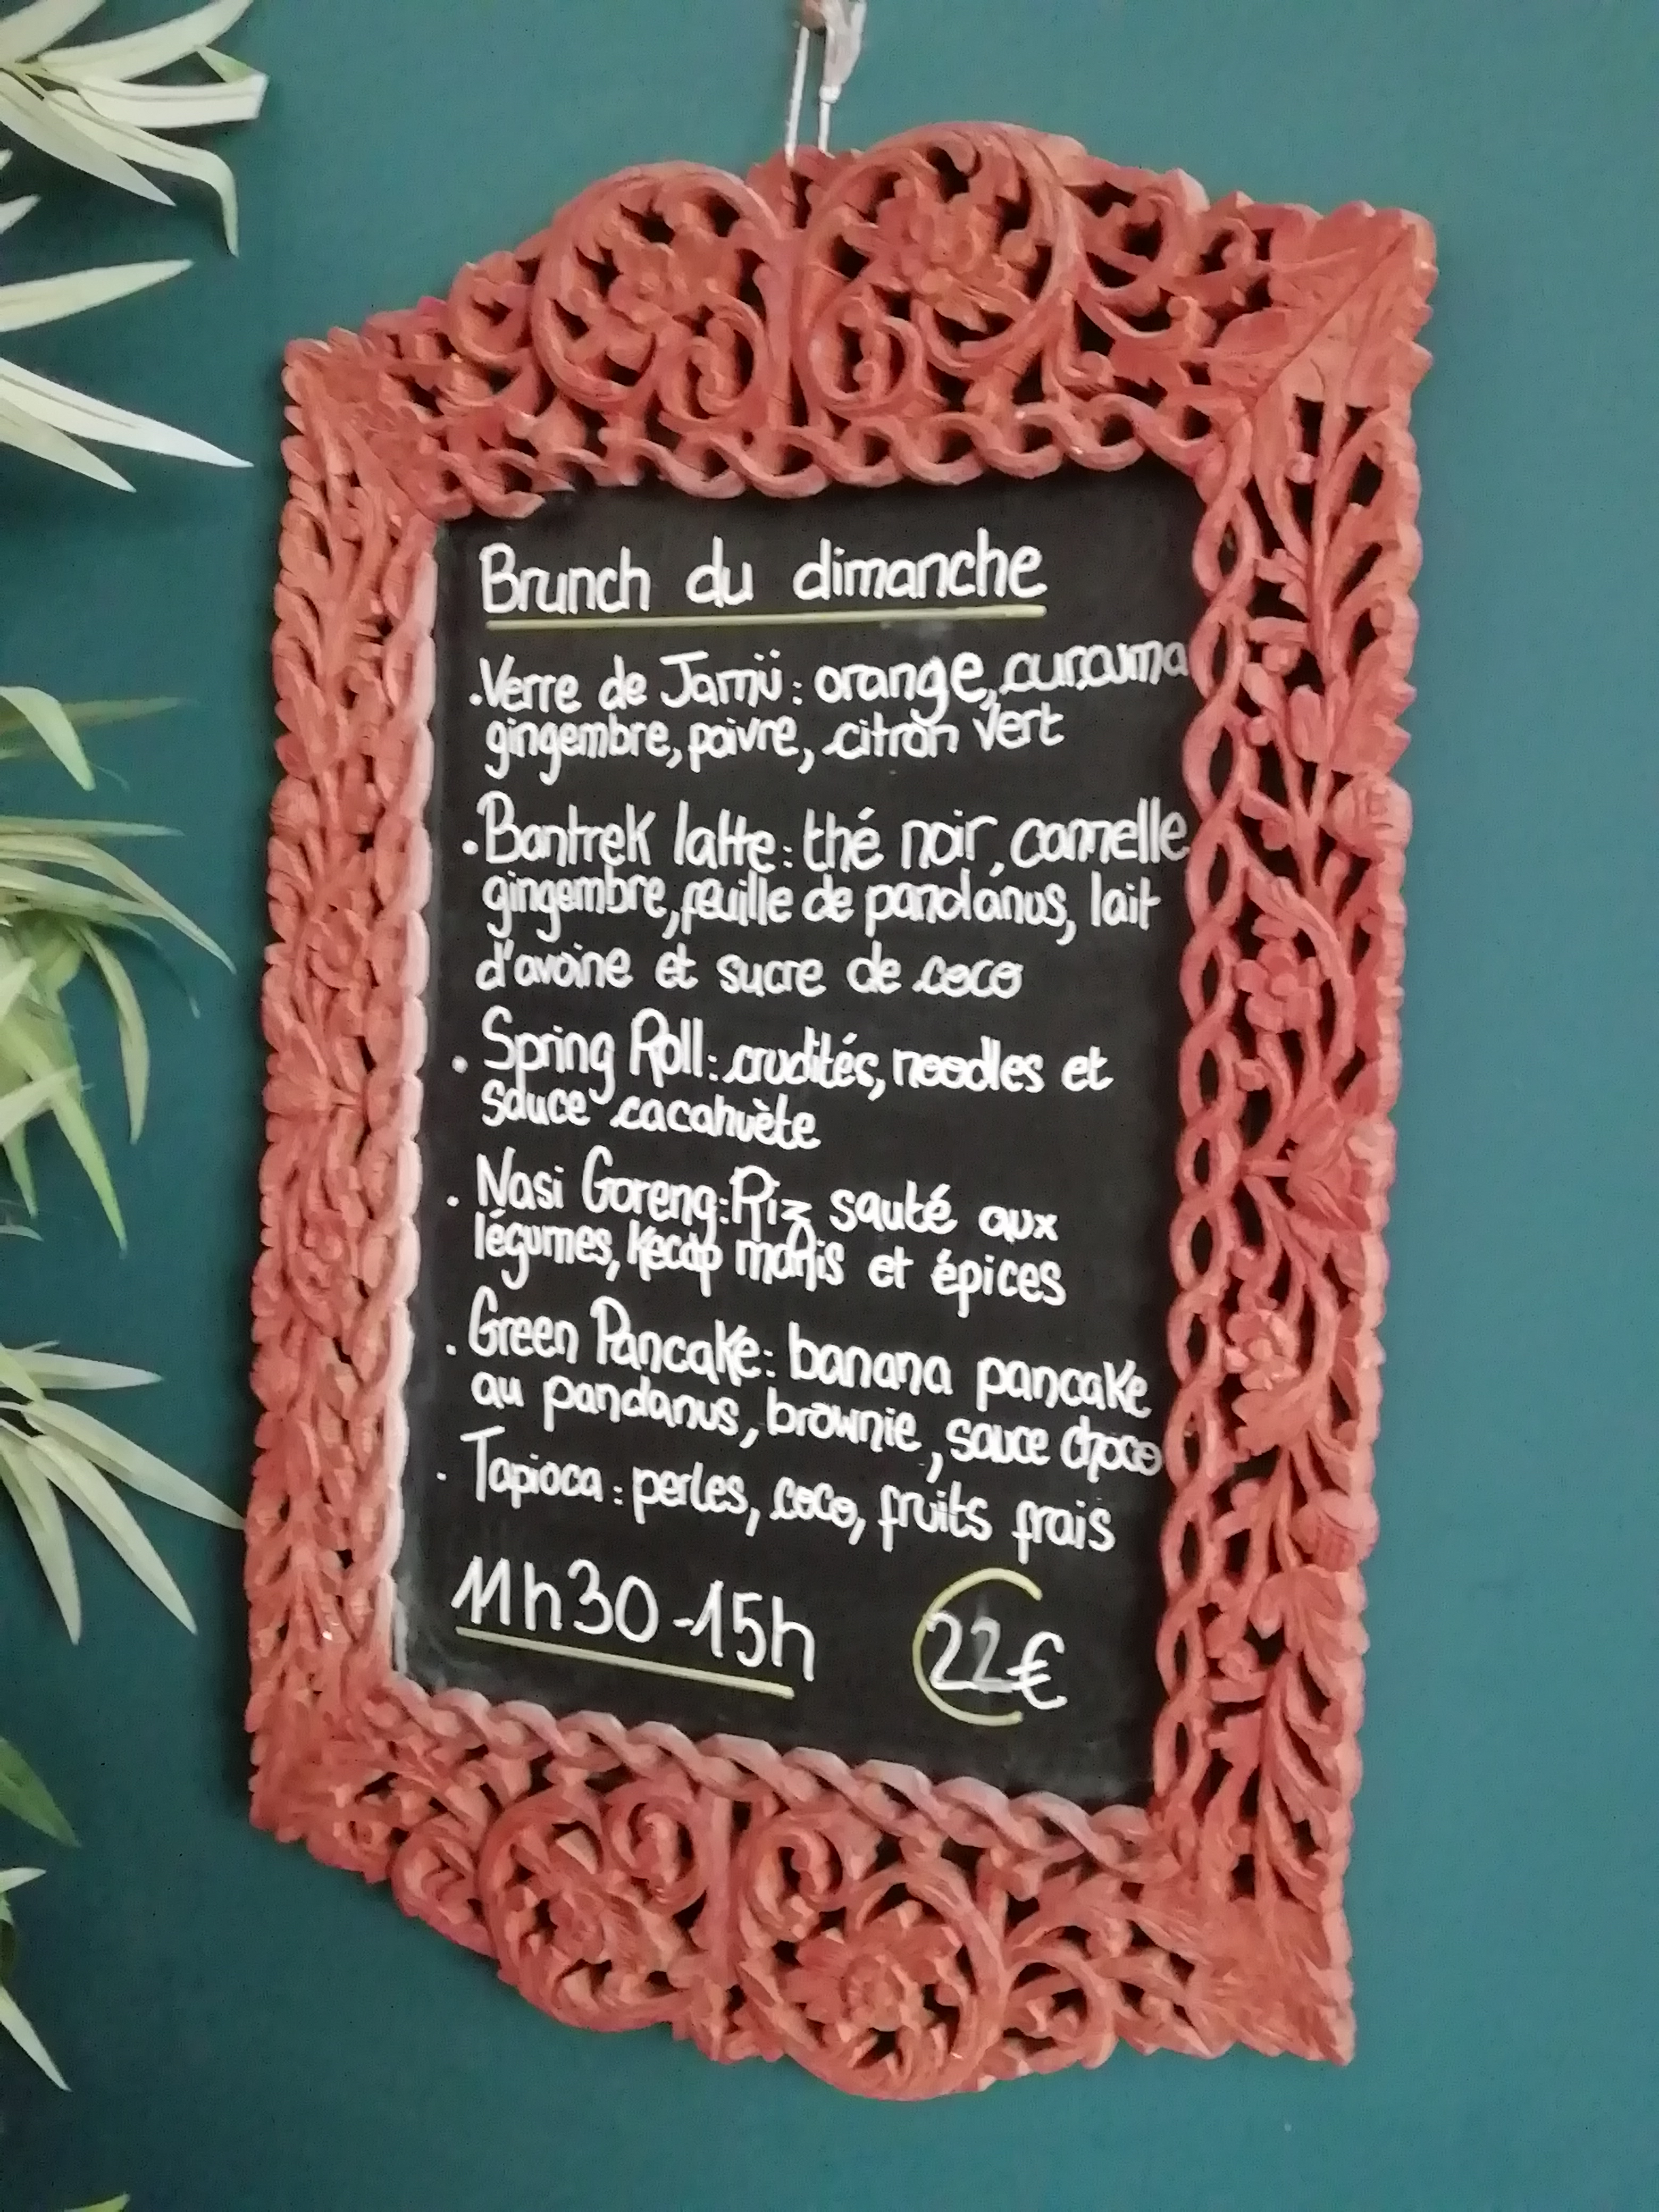 Brunch du dimanche
.Verre de Jamü: orange, curcuma
gingembre, poivre, citron vert
.Bantrek latte: thé noir, cannelle
gingembre, feuille de pandanus, lait
d'avoine et sucre de coco
. Spring Roll: crudités, noodles et
sauce cacahuète
. Nasi Goreng: Riz sauté aux
légumes, Kecap manis et épices
. Green Pancake: banana pancake
au pandanus, brownie, sauce choco
. Tapioca: perles, coco, fruits frais
11h30-15h 22€